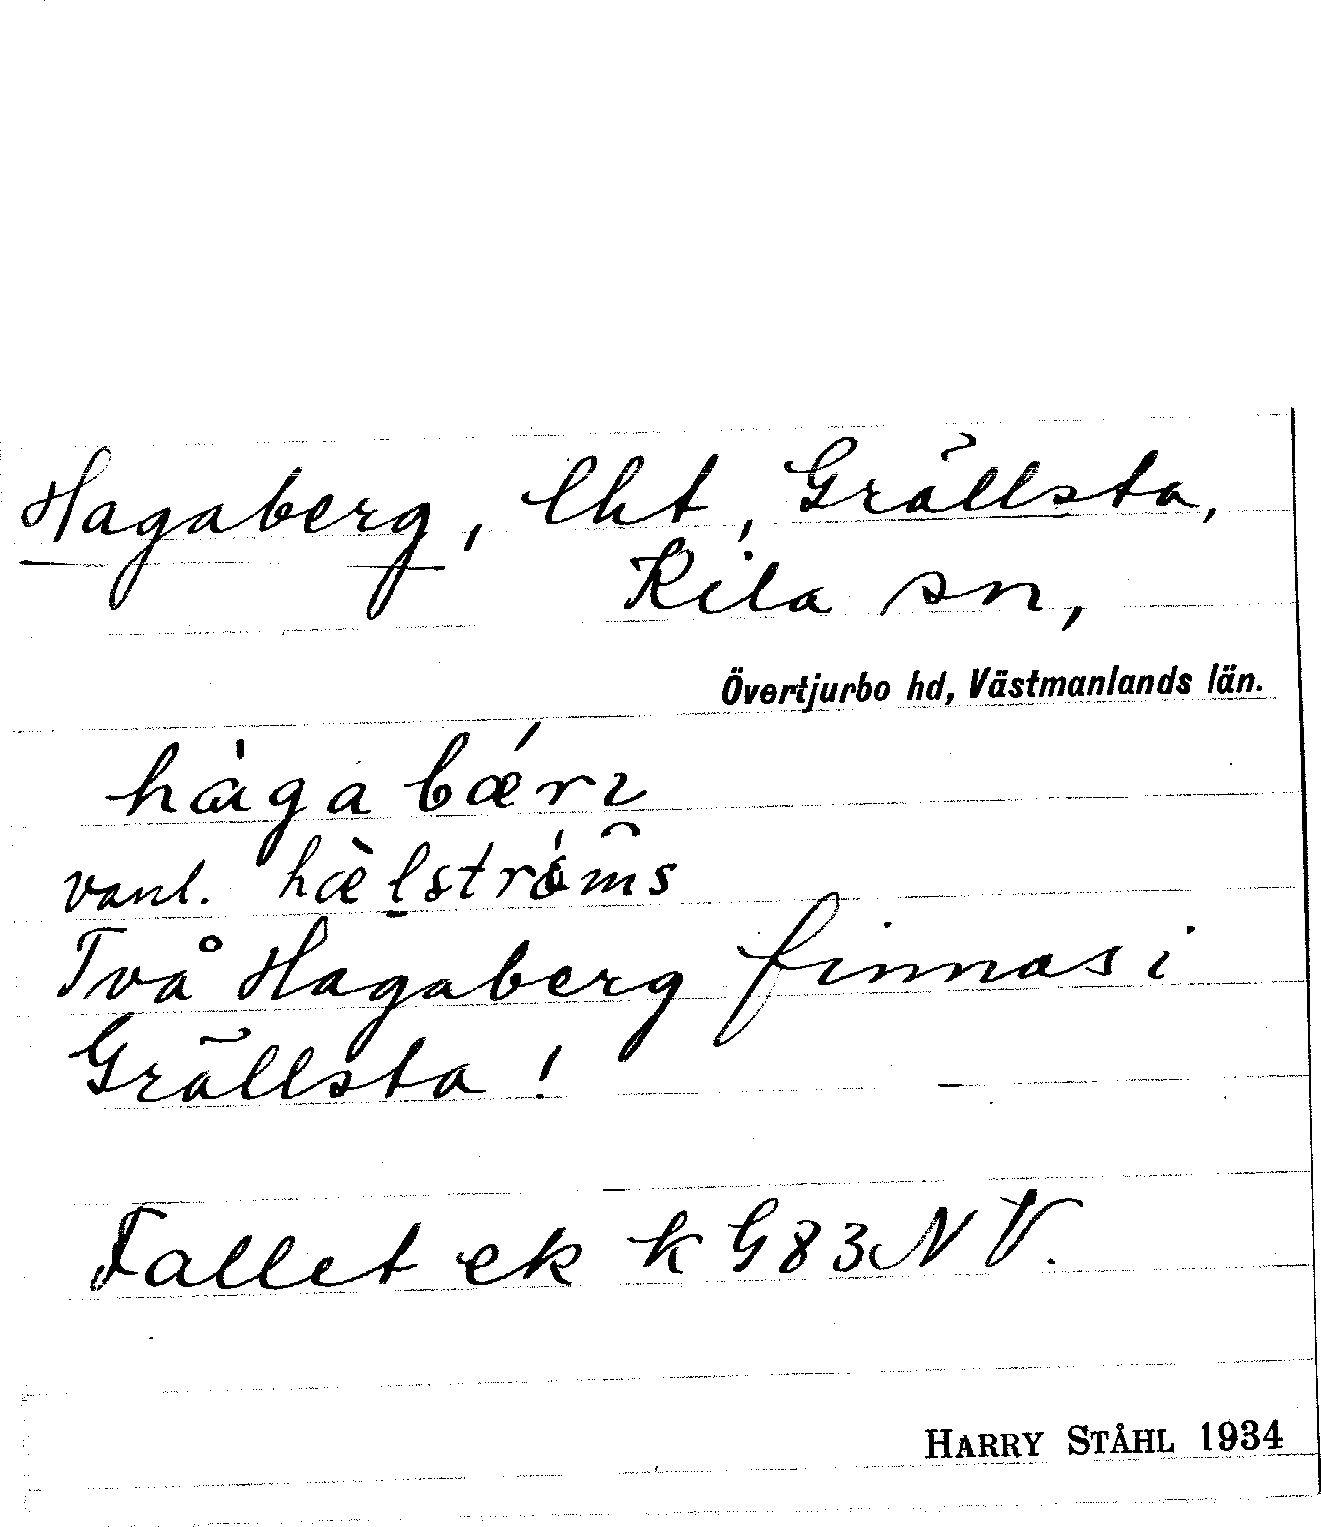 Hagaberg, lht, Grällsta,
Kila sn,
Övertjurbo hd, Västmanlands län.
hàgabǽrɩ
vanl. hæ̀l̥strö́m̑s
Två Hagaberg finnas i
Grällsta!
Fallet ek k G83NV.
HARRY STÅHL 1934